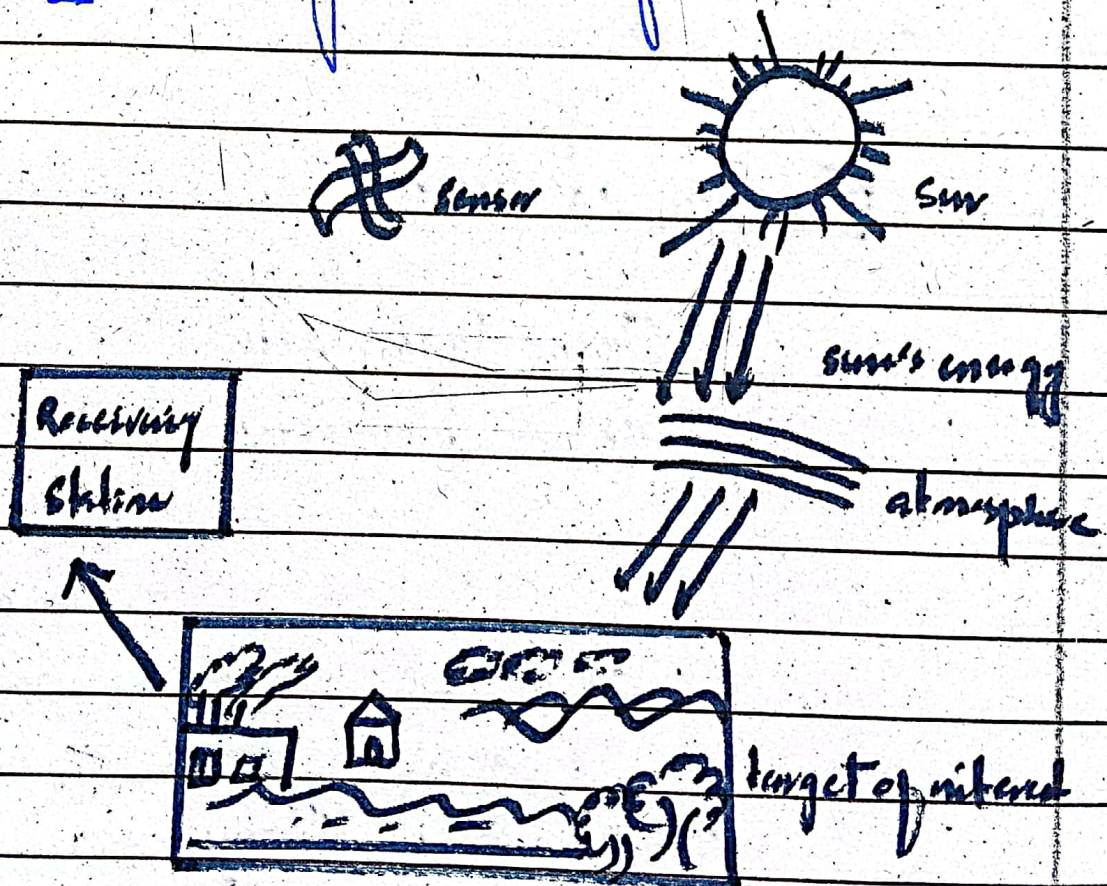 Sensor
Sun
sun's energy
Receiving
Station
atmosphere
target of interest